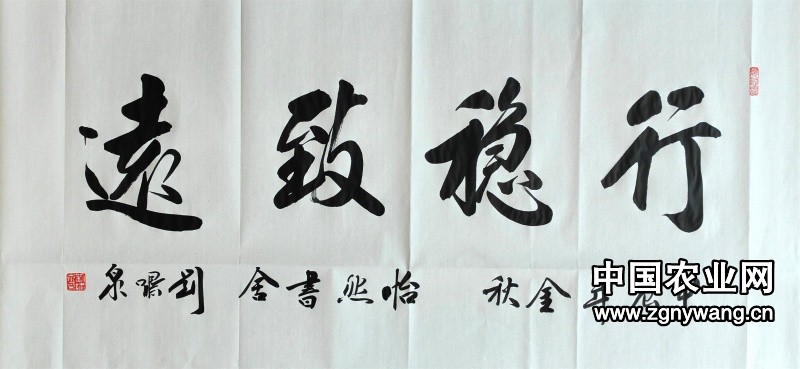 行稳致遠
金秋 怡然書舍 劉曙泉
中国农业网
www.zgnywang.cn